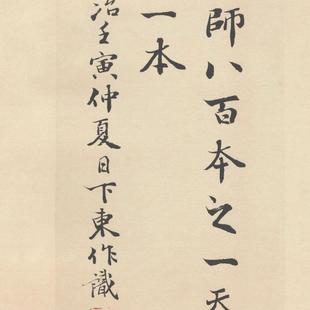 師八百本之一天
一本
治壬寅仲夏日下東作識